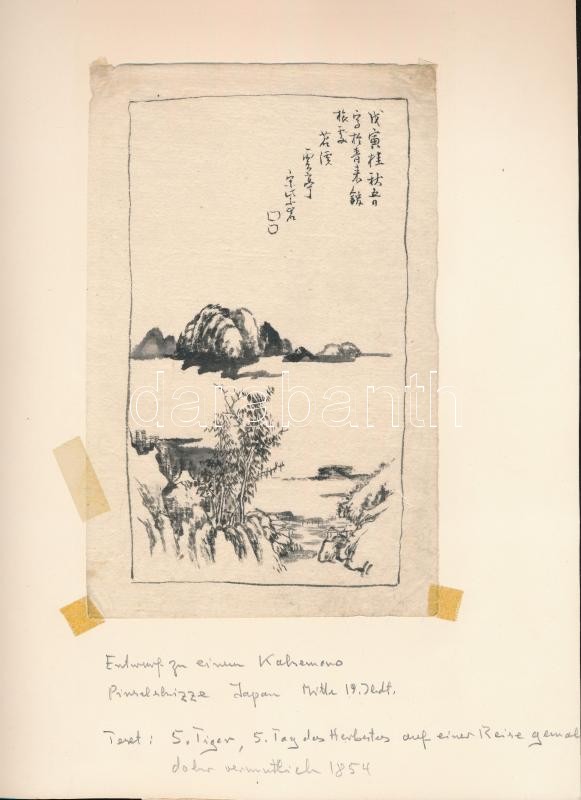 戊寅桂秋五日
寫於青来館
旅
苕溪
雲亭
darabanth
Entwurf zu einem Kakemono
Pinselskizze Japan Mitte 19. Jhdt.
Text: 5. Tiger, 5. Tag des Herbstes auf einer Reise gemal
daher vermutlich 1854